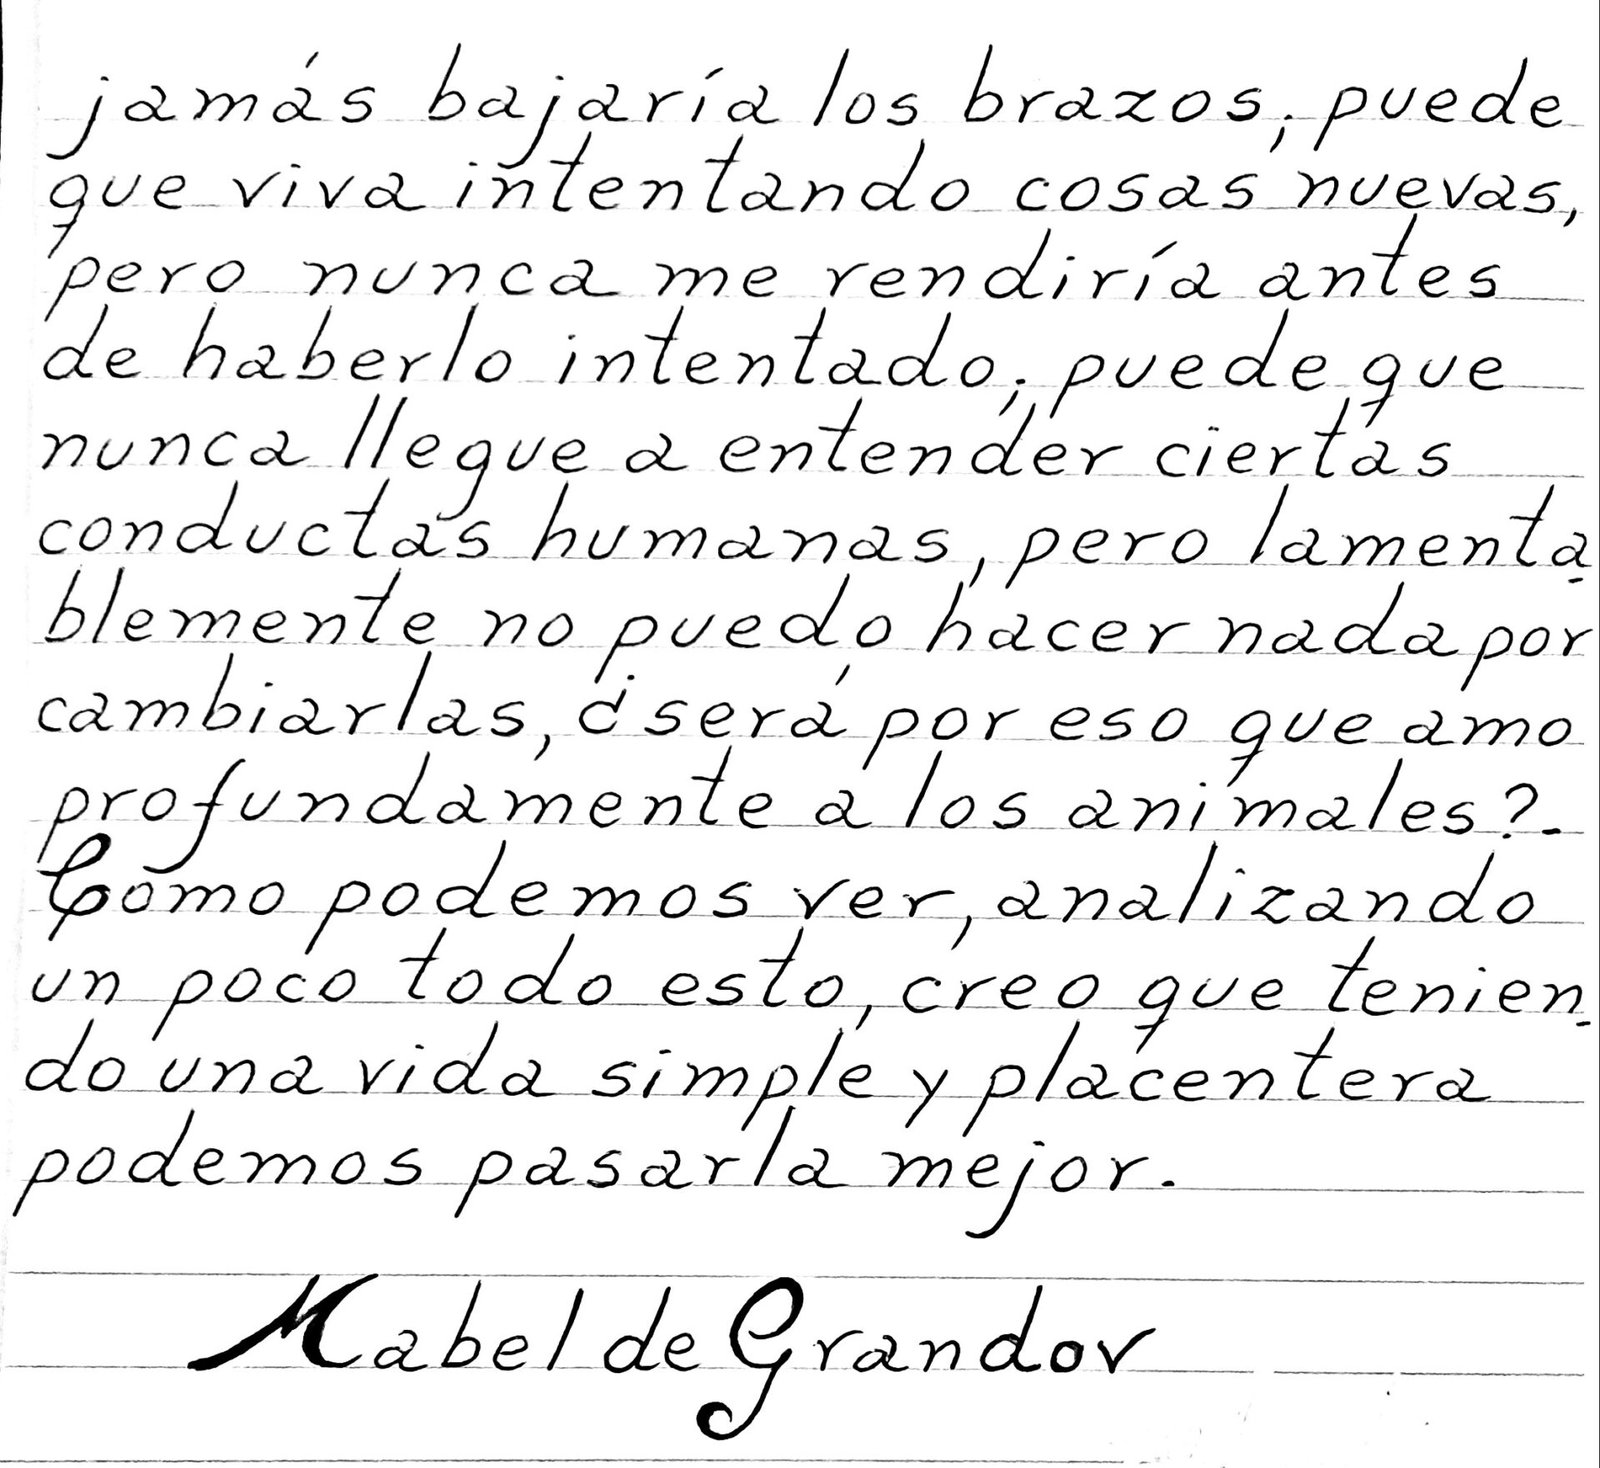 jamás bajaría los brazos; puede
que viva intentando cosas nuevas,
pero nunca me rendiría antes
de haberlo intentado; puede que
nunca llegue a entender ciertas
conductas humanas, pero lamenta-
blemente no puedo hacer nada por
cambiarlas, ¿será por eso que amo
profundamente a los animales?.-
Como podemos ver, analizando
un poco todo esto, creo que tenien-
do una vida simple y placentera
podemos pasarla mejor.
Mabel de Grandov